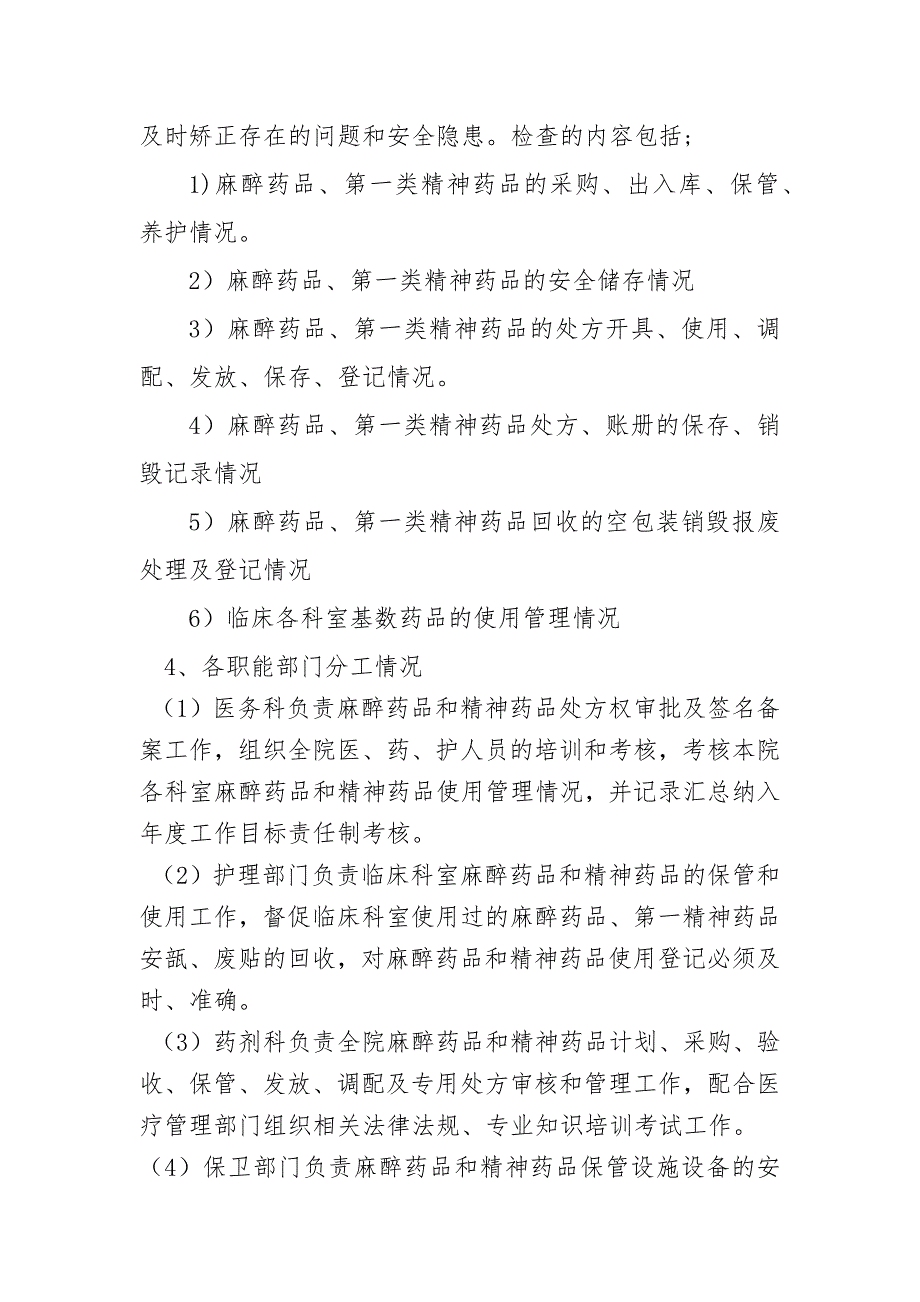 及时矫正存在的问题和安全隐患。检查的内容包括;
1)麻醉药品、第一类精神药品的采购、出入库、保管、
养护情况。
2）麻醉药品、第一类精神药品的安全储存情况
3）麻醉药品、第一类精神药品的处方开具、使用、调
配、发放、保存、登记情况。
4）麻醉药品、第一类精神药品处方、账册的保存、销
毁记录情况
5）麻醉药品、第一类精神药品回收的空包装销毁报废
处理及登记情况
6）临床各科室基数药品的使用管理情况
4、各职能部门分工情况
（1）医务科负责麻醉药品和精神药品处方权审批及签名备
案工作，组织全院医、药、护人员的培训和考核，考核本院
各科室麻醉药品和精神药品使用管理情况，并记录汇总纳入
年度工作目标责任制考核。
（2）护理部门负责临床科室麻醉药品和精神药品的保管和
使用工作，督促临床科室使用过的麻醉药品、第一精神药品
安瓿、废贴的回收，对麻醉药品和精神药品使用登记必须及
时、准确。
（3）药剂科负责全院麻醉药品和精神药品计划、采购、验
收、保管、发放、调配及专用处方审核和管理工作，配合医
疗管理部门组织相关法律法规、专业知识培训考试工作。
（4）保卫部门负责麻醉药品和精神药品保管设施设备的安